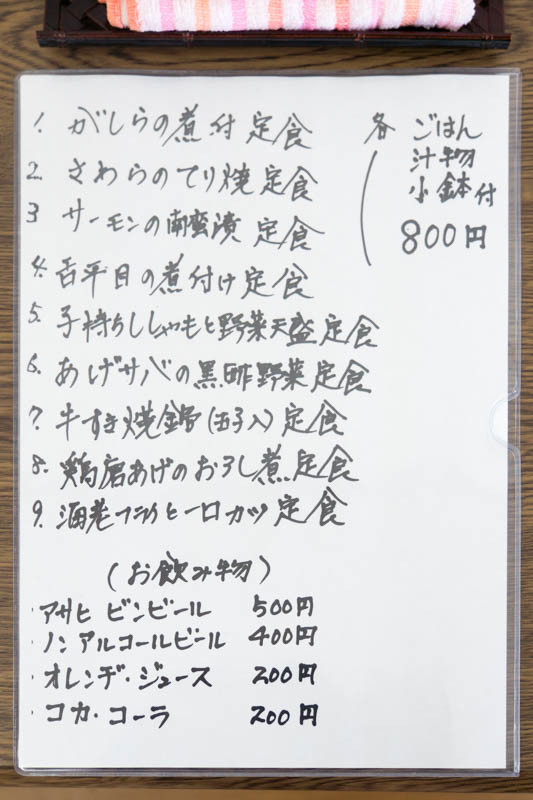 1. がしらの煮付定食
2. さわらのてり焼定食
3 サーモンの南蛮漬 定食
4. 舌平目の煮付け定食
5. 子持ちししゃもと野菜天盛定食
6. あげサバの黒酢野菜定食
7. 牛すき焼鍋(玉子入)定食
8. 鶏唐あげのおろし煮定食
9. 海老フライとヒーロカツ定食
各 ごはん
汁物
小鉢付
800円
(お飲み物)
・アサヒ ビンビール 500円
・ノンアルコールビール 400円
・オレンヂ・ジュース 200円
・コカ・コーラ 200円